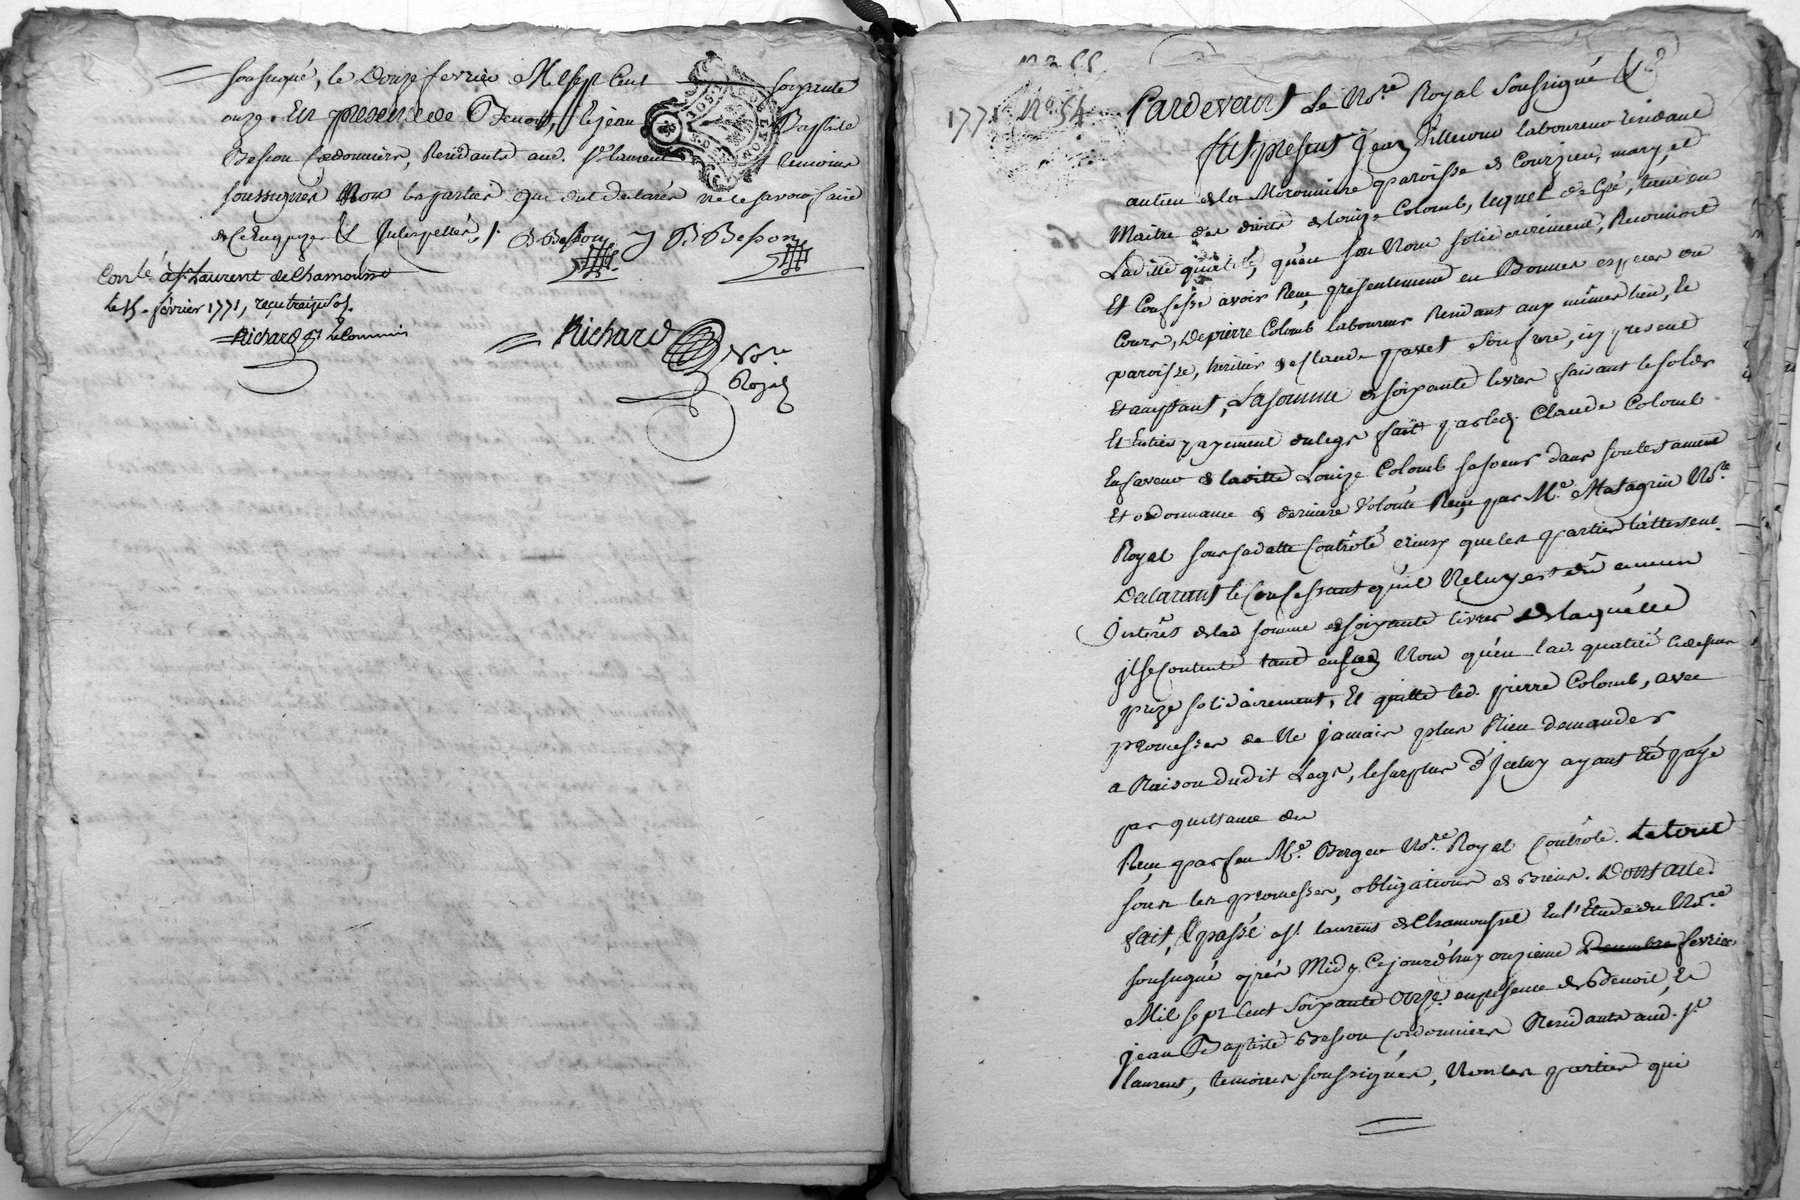 soussigné, le Douze fevrier Mil sept Cent soixante
onze. En presence de Benoit, & jean Baptiste
Besson Cordonniers, Residants aud. St laurent temoins
soussignés Non les parties qui ont declarés ne le savoir faire
de ce Enquizes & Interpellés, /.
B Besson J B. Besson
Conlé à St Laurent de Chamousset
le 15. février 1771, reçu treize sols.
Richard Commis
Richard
Nore
Royal
1771 No. 54.
Pardevant Le Nore. Royal Soussigné &c
fut present Jean Villemont laboureur residant
au lieu de la Moronniere paroisse de Courzieu, mary, et
Maître des droits de louize Colomb, lequel de Gré, tant en
Ladite qualité, qu'en son Nom solidairement, Reconnoit
Et Confesse avoir Reçu presentement en Bonnes especes au
Cours, De pierre Colomb laboureur Residant aux mêmes lieu, &
paroisse, heritier de claude son frere, icy present
Et acceptant, La somme de soixante livres faisant le solde
Et Entier payement du legs fait par led. Claude Colomb
En faveur de ladite Louize Colomb sa soeur dans son testament
Et ordonnance de derniere Volonté Reçu par Me. Matagrin Nore.
Royal sous sa datte Controlé ainsy que les parties l'attestent.
Declarant le Confessant qu'il Ne luy est dû aucun
Interêts de lad. somme de soixante livres de laquelle
il se Contente tant en sond. Nom qu'en lad. qualité cy dessus
prize solidairement, Et quitte led. pierre Colomb, avec
promesses de Ne jamais plus Rien demander
a Raison dudit Legs, le surplus d'Iceluy ayant Eté payé
par quittance du
Reçu par feu Me. Berger Nore. Royal Controlé. Le tout
sous les promesses, obligations de Biens. Dont acte.
fait, & passé a St. laurens de Chamousset En l'Etude du Nore.
soussigné après Midy Cejourd'huy onzieme Decembre fevrier
Mil sept Cent soixante Onze. en presence de Benoit, &
jean Baptiste Besson Cordonniers Residants aud. St.
laurent, temoins soussignés, Non les parties qui